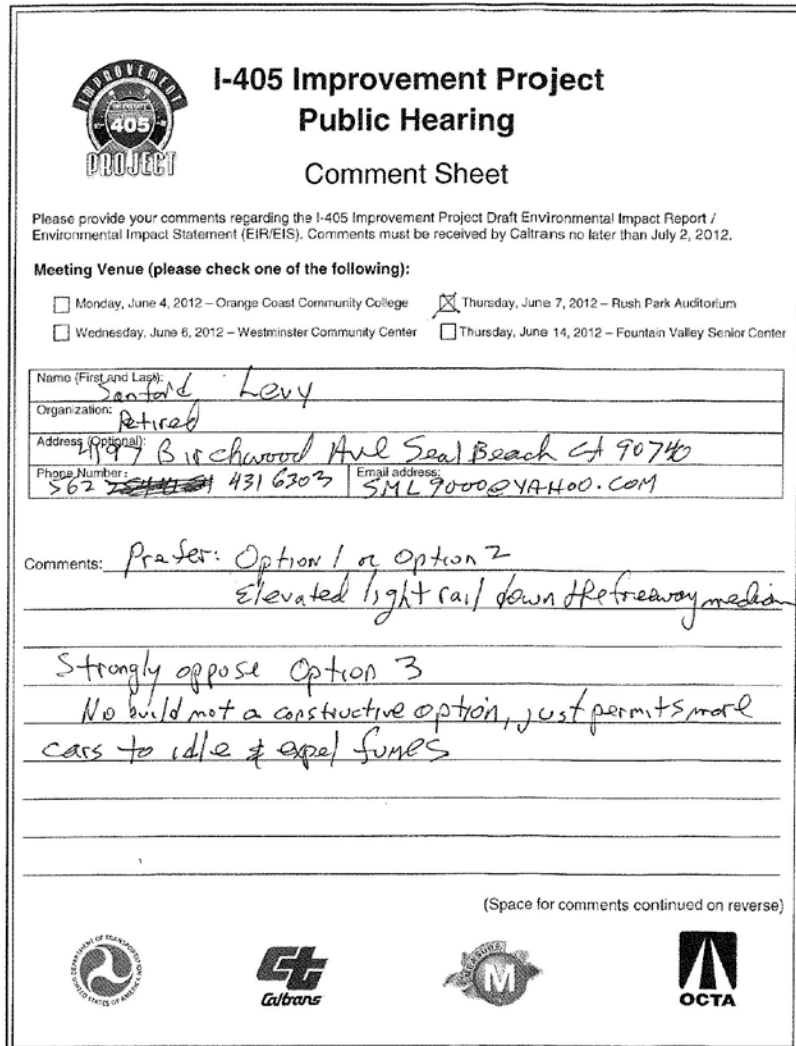 IMPROVEMENT
405
PROJECT
I-405 Improvement Project
Public Hearing
Comment Sheet
Please provide your comments regarding the I-405 Improvement Project Draft Environmental Impact Report /
Environmental Impact Statement (EIR/EIS). Comments must be received by Caltrans no later than July 2, 2012.
Meeting Venue (please check one of the following):
Monday, June 4, 2012 – Orange Coast Community College
Thursday, June 7, 2012 – Rush Park Auditorium
Wednesday, June 6, 2012 – Westminster Community Center
Thursday, June 14, 2012 – Fountain Valley Senior Center
Name (First and Last): Sanford Levy
Organization: Retired
Address (Optional): 4197 Birchwood Ave Seal Beach CA 90740
Phone Number: 562 431 6303
Email address: SML9000@YAHOO.COM
Comments: Prefer: Option 1 or Option 2
Elevated light rail down the freeway median
Strongly oppose Option 3
No build not a constructive option, just permits more
cars to idle & expel fumes
(Space for comments continued on reverse)
DEPARTMENT OF TRANSPORTATION
UNITED STATES OF AMERICA
Caltrans
MEASURE
M
OCTA